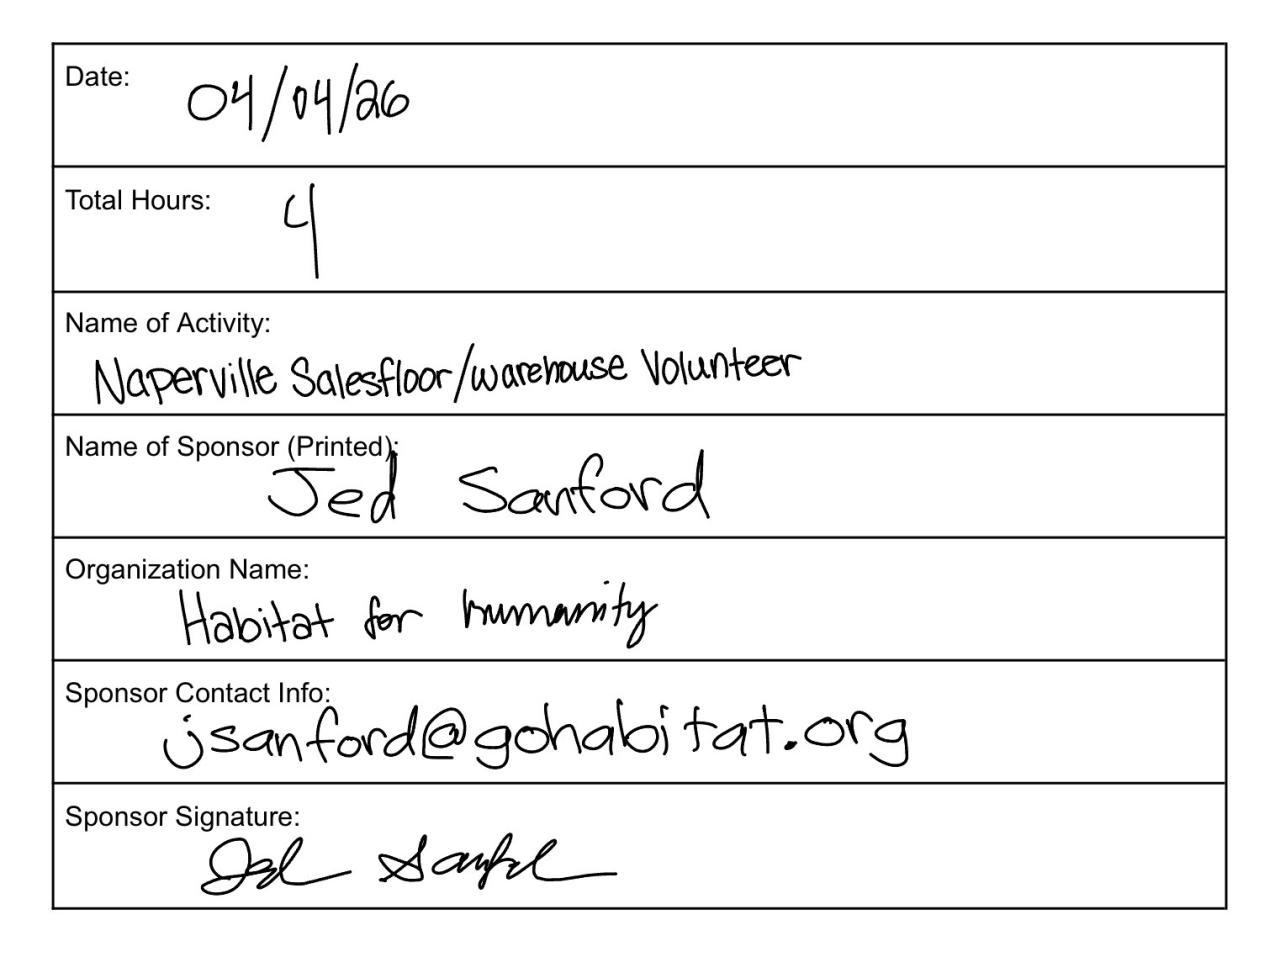 Date: 04/04/26
Total Hours: 4
Name of Activity:
Naperville Salesfloor/warehouse Volunteer
Name of Sponsor (Printed):
Jed Sanford
Organization Name:
Habitat for humanity
Sponsor Contact Info:
jsanford@gohabitat.org
Sponsor Signature:
Jed Sanford